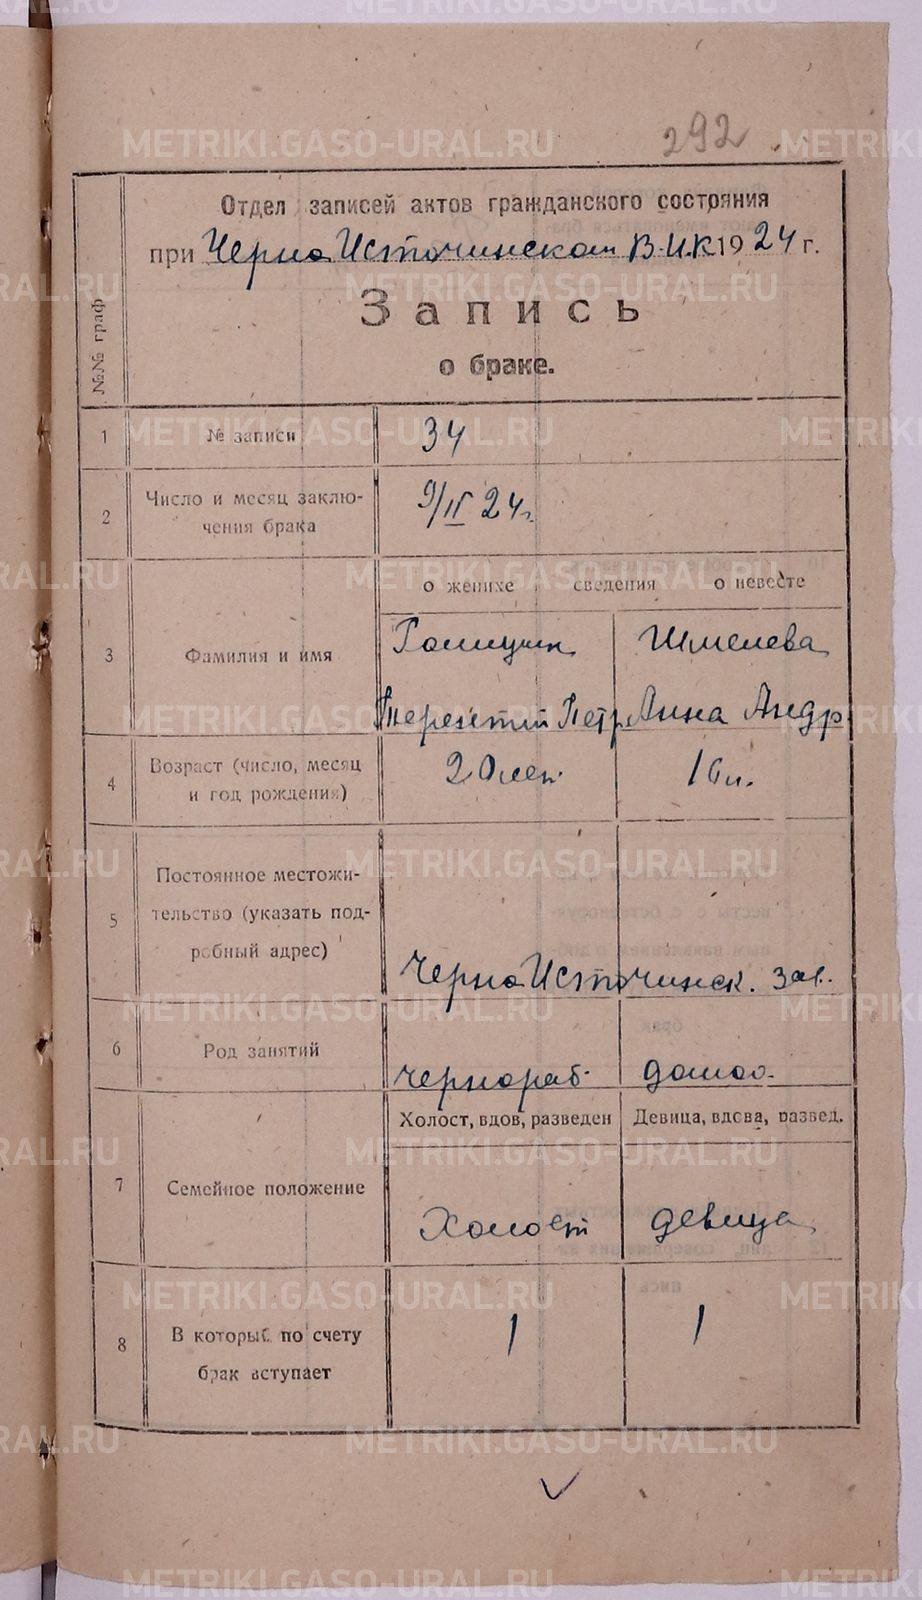 292
Отдел записей актов гражданского состояния
при Черно Источинском В.И.К 1924 г.
Запись
о браке.
№№ граф
1 № записи 34
2 Число и месяц заклю-
чения брака 9/II 24 г.
о женихе сведения о невесте
3 Фамилия и имя Галицын Шмелева
Терентий Петр. Анна Андр
4 Возраст (число, месяц
и год рождения) 20 лет. 16 л.
5 Постоянное местожи-
тельство (указать под-
робный адрес) Черно Источинск. зав.
6 Род занятий чернораб. домаш.
Холост, вдов, разведен Девица, вдова, развед.
7 Семейное положение Холост девица
8 В который по счету
брак вступает 1 1
METRIKI.GASO-URAL.RU